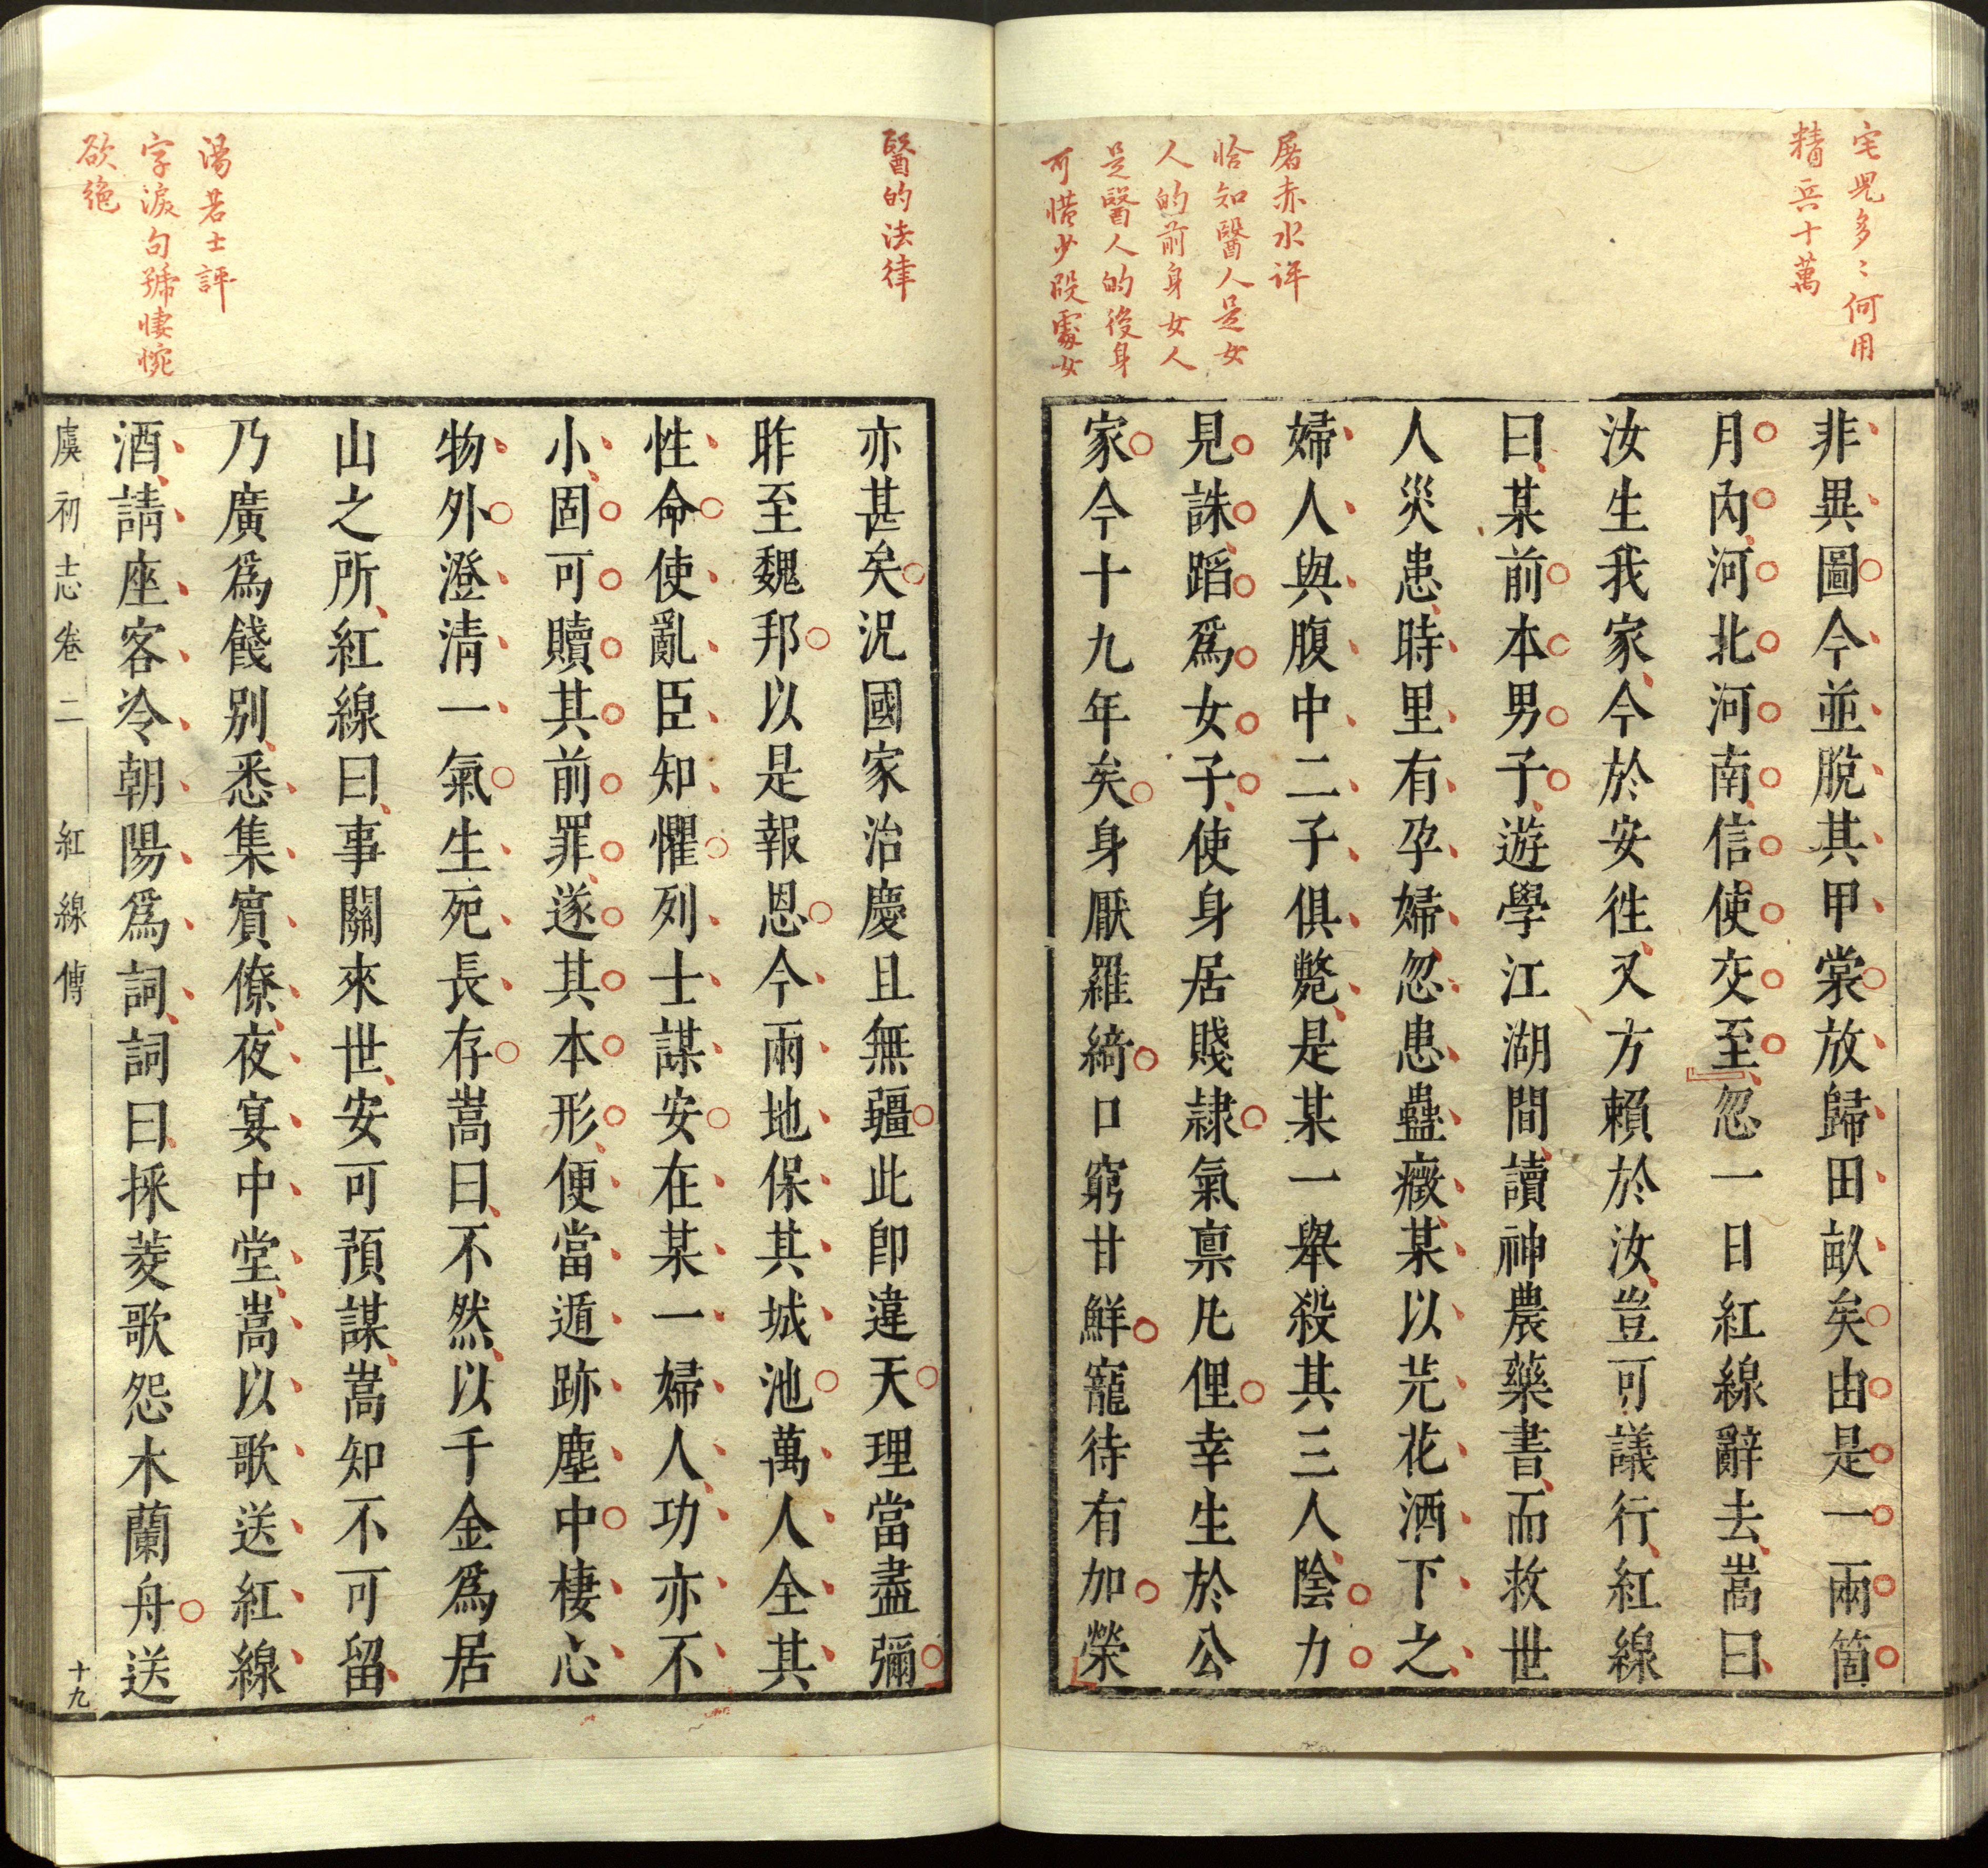 宅兒多〻何用
精兵十萬
屠赤水評
恰知醫人是女
人的前身女人
是醫人的後身
可惜少段處女
非異圖今並脫其甲裳放歸田畝矣由是一兩箇
月內河北河南信使交至忽一日紅線辭去嵩曰
汝生我家今於安徃又方賴於汝豈可議行紅線
曰某前本男子遊學江湖間讀神農藥書而救世
人災患時里有孕婦忽患蠱癥某以芫花酒下之
婦人與腹中二子俱斃是某一舉殺其三人陰力
見誅蹈爲女子使身居賤隷氣禀凡俚幸生於公
家今十九年矣身厭羅綺口窮甘鮮寵待有加榮
醫的法律
湯若士評
字淚句號悽惋
欲絶
亦甚矣況國家治慶且無疆此卽違天理當盡彌
昨至魏邦以是報恩今兩地保其城池萬人全其
性命使亂臣知懼列士謀安在某一婦人功亦不
小固可贖其前罪遂其本形便當遁跡塵中棲心
物外澄清一氣生死長存嵩曰不然以千金爲居
山之所紅線曰事關來世安可預謀嵩知不可留
乃廣爲餞別悉集賓僚夜宴中堂嵩以歌送紅線
酒請座客冷朝陽爲詞詞曰採菱歌怨木蘭舟送
虞初志卷二 紅線傳 十九